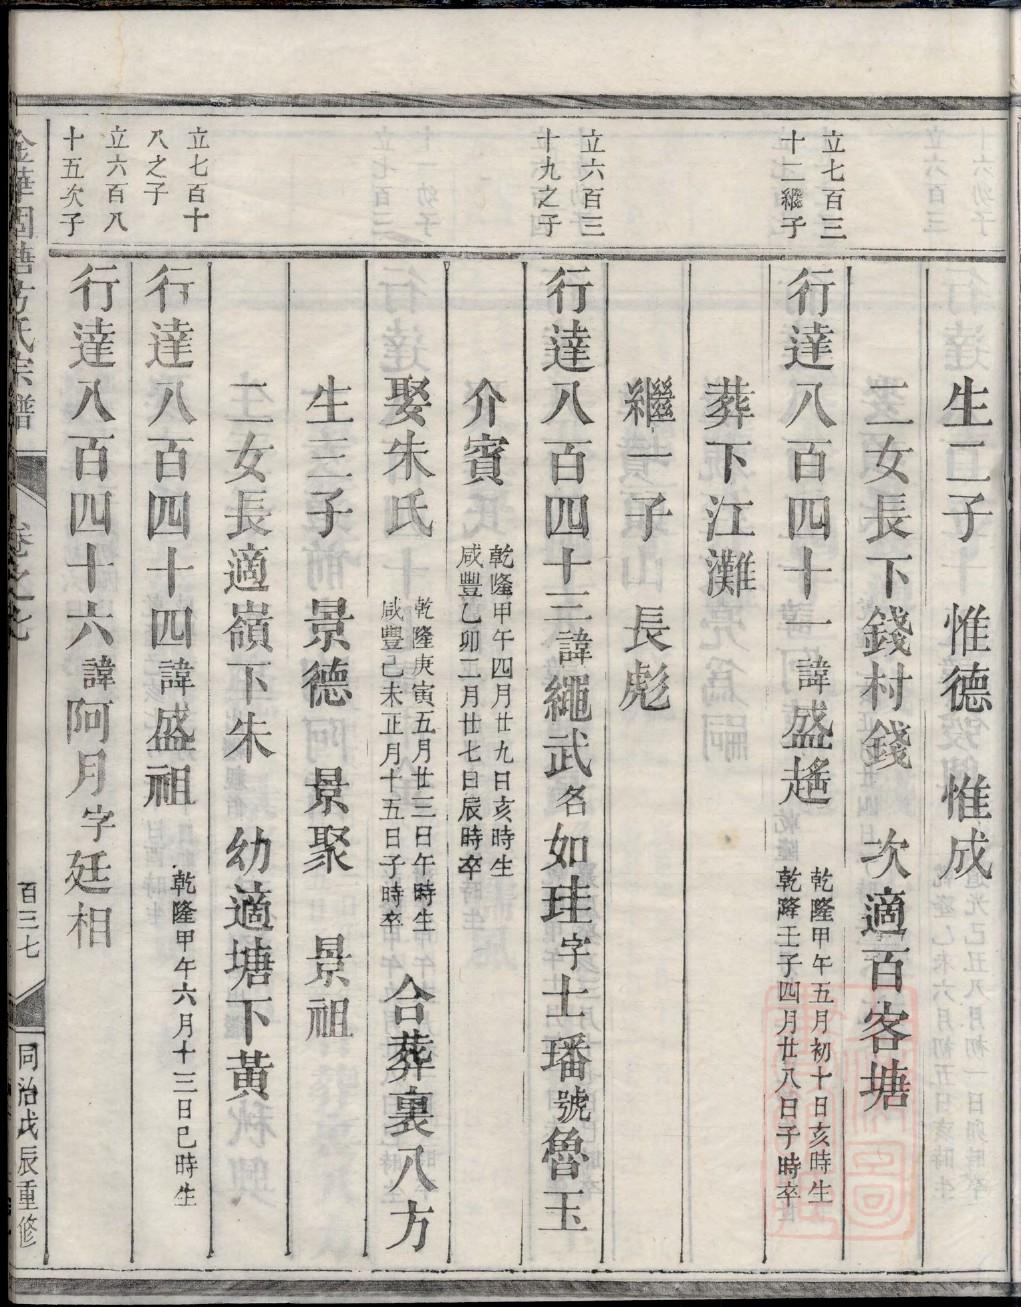 生二子　惟德　惟成
二女長下錢村錢　次適百客塘
立七百三
十二繼子
行達八百四十一諱盛遙
乾隆甲午五月初十日亥時生
乾隆壬子四月廿八日子時卒
葬下江灘
繼一子　長彪
立六百三
十九之子
行達八百四十三諱繩武名如珪字士璠號魯玉
介賓
乾隆甲午四月廿九日亥時生
咸豐乙卯二月廿七日辰時卒
娶朱氏
乾隆庚寅五月廿三日午時生
咸豐己未正月十五日子時卒
合葬裏八方
生三子　景德　景聚　景祖
二女長適嶺下朱　幼適塘下黃
立七百十
八之子
行達八百四十四諱盛祖
乾隆甲午六月十三日巳時生
立六百八
十五次子
行達八百四十六諱阿月字廷相
方氏宗譜
卷之
百三七
同治戊辰重修